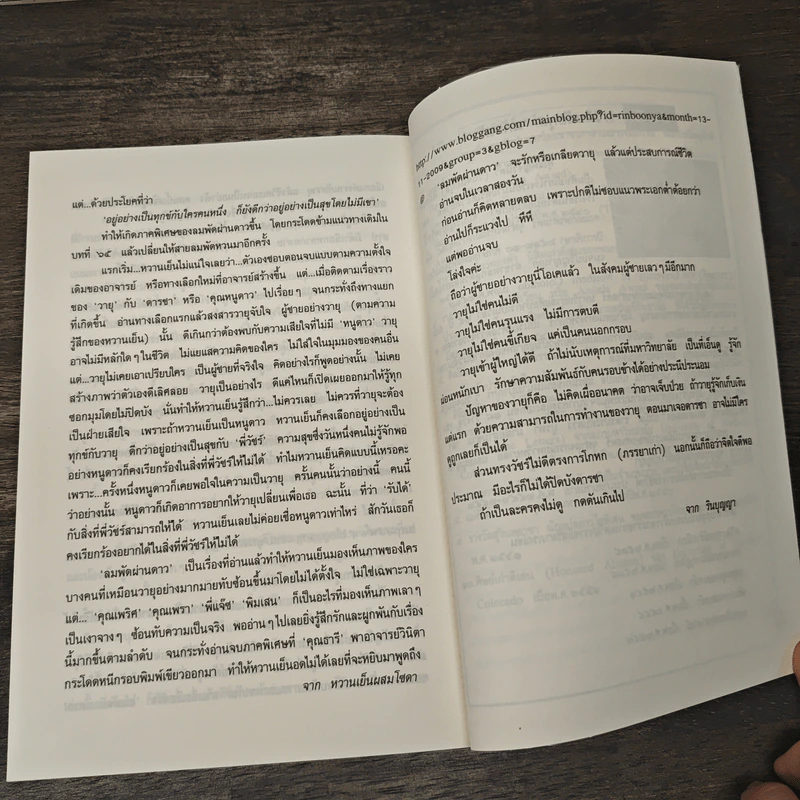 แต่...ด้วยประโยคที่ว่า
'อยู่อย่างเป็นทุกข์กับใครคนหนึ่ง ก็ยังดีกว่าอยู่อย่างเป็นสุขโดยไม่มีเขา'
ทำให้เกิดภาคพิเศษของลมพัดผ่านดาวขึ้น โดยกระโดดข้ามแนวทางเดิมใน
บทที่ ๖๕ แล้วเปลี่ยนให้สายลมพัดหวนมาอีกครั้ง
แรกเริ่ม...หวานเย็นไม่แน่ใจเลยว่า...ตัวเองชอบตอนจบแบบตามความตั้งใจ
เดิมของอาจารย์ หรือทางเลือกใหม่ที่อาจารย์สร้างขึ้น แต่...เมื่อติดตามเรื่องราว
ของ 'วายุ' กับ 'ดารชา' หรือ 'คุณหนูดาว' ไปเรื่อยๆ จนกระทั่งถึงทางแยก
ที่เกิดขึ้น อ่านทางเลือกแรกแล้วสงสารวายุจับใจ ผู้ชายอย่างวายุ (ตามความ
รู้สึกของหวานเย็น) นั้น ดีเกินกว่าต้องพบกับความเสียใจที่ไม่มี 'หนูดาว' วายุ
อาจไม่มีหลักใดๆ ในชีวิต ไม่แยแสความคิดของใคร ไม่ใส่ใจในมุมมองของคนอื่น
แต่...วายุไม่เคยเอาเปรียบใคร เป็นผู้ชายที่จริงใจ คิดอย่างไรก็พูดอย่างนั้น ไม่เคย
สร้างภาพว่าตัวเองดีเลิศลอย วายุเป็นอย่างไร ดีแค่ไหนก็เปิดเผยออกมาให้รู้ทุก
ซอกมุมโดยไม่ปิดบัง นั่นทำให้หวานเย็นรู้สึกว่า...ไม่ควรเลย ไม่ควรที่วายุจะต้อง
เป็นฝ่ายเสียใจ เพราะถ้าหวานเย็นเป็นหนูดาว หวานเย็นก็คงเลือกอยู่อย่างเป็น
ทุกข์กับวายุ ดีกว่าอยู่อย่างเป็นสุขกับ 'พี่วัชร์' ความสุขซึ่งวันหนึ่งคนไม่รู้จักพอ
อย่างหนูดาวก็คงเรียกร้องในสิ่งที่พี่วัชร์ให้ไม่ได้ ทำไมหวานเย็นคิดแบบนี้เหรอคะ
เพราะ...ครั้งหนึ่งหนูดาวก็เคยพอใจในความเป็นวายุ ครั้นคนนั้นว่าอย่างนี้ คนนี้
ว่าอย่างนั้น หนูดาวก็เกิดอาการอยากให้วายุเปลี่ยนเพื่อเธอ ฉะนั้น ที่ว่า 'รับได้'
กับสิ่งที่พี่วัชร์สามารถให้ได้ หวานเย็นเลยไม่ค่อยเชื่อหนูดาวเท่าไหร่ สักวันเธอก็
คงเรียกร้องอยากได้ในสิ่งที่พี่วัชร์ให้ไม่ได้
'ลมพัดผ่านดาว' เป็นเรื่องที่อ่านแล้วทำให้หวานเย็นมองเห็นภาพของใคร
บางคนที่เหมือนวายุอย่างมากมายทับซ้อนขึ้นมาโดยไม่ได้ตั้งใจ ไม่ใช่เฉพาะวายุ
แต่... 'คุณเพริศ' 'คุณเพรา' 'พี่แจ๊ซ' 'พิมเสน' ก็เป็นอะไรที่มองเห็นภาพเลาๆ
เป็นเงาจางๆ ซ้อนทับความเป็นจริง พออ่านๆ ไปเลยยิ่งรู้สึกรักและผูกพันกับเรื่อง
นี้มากขึ้นตามลำดับ จนกระทั่งอ่านจบภาคพิเศษที่ 'คุณธารี' พาอาจารย์วินิตา
กระโดดหนีกรอบพิมพ์เขียวออกมา ทำให้หวานเย็นอดไม่ได้เลยที่จะหยิบมาพูดถึง
จาก หวานเย็นผสมโซดา
http://www.bloggang.com/mainblog.php?id=rinboonya&month=13-
11-2009&group=3&gblog=7
'ลมพัดผ่านดาว' จะรักหรือเกลียดวายุ แล้วแต่ประสบการณ์ชีวิต
@ อ่านจบในเวลาสองวัน
ก่อนอ่านก็คิดหลายตลบ เพราะปกติไม่ชอบแนวพระเอกต่ำต้อยกว่า
อ่านไปก็ระแวงไป ทีที
แต่พออ่านจบ
โล่งใจค่ะ
ถือว่าผู้ชายอย่างวายุนี่โอเคแล้ว ในสังคมผู้ชายเลวๆ มีอีกมาก
วายุไม่ใช่คนไม่ดี
วายุไม่ใช่คนรุนแรง ไม่มีการตบตี
วายุไม่ใช่คนขี้เกียจ แค่เป็นคนนอกกรอบ
วายุเข้าผู้ใหญ่ได้ดี ถ้าไม่นับเหตุการณ์ที่มหาวิทยาลัย เป็นที่เอ็นดู รู้จัก
ผ่อนหนักเบา รักษาความสัมพันธ์กับคนรอบข้างได้อย่างประนีประนอม
ปัญหาของวายุก็คือ ไม่คิดเผื่ออนาคต ว่าอาจเจ็บป่วย ถ้าวายุรู้จักเก็บเงิน
แต่แรก ด้วยความสามารถในการทำงานของวายุ ตอนมาเจอดารชา อาจไม่มีใคร
ดูถูกเลยก็เป็นได้
ส่วนทรงวัชร์ไม่ดีตรงการโกหก (ภรรยาเก่า) นอกนั้นก็ถือว่าจิตใจดีพอ
ประมาณ มีอะไรก็ไม่ได้ปิดบังดารชา
ถ้าเป็นละครคงไม่ดู กดดันเกินไป
จาก รินบุญญา